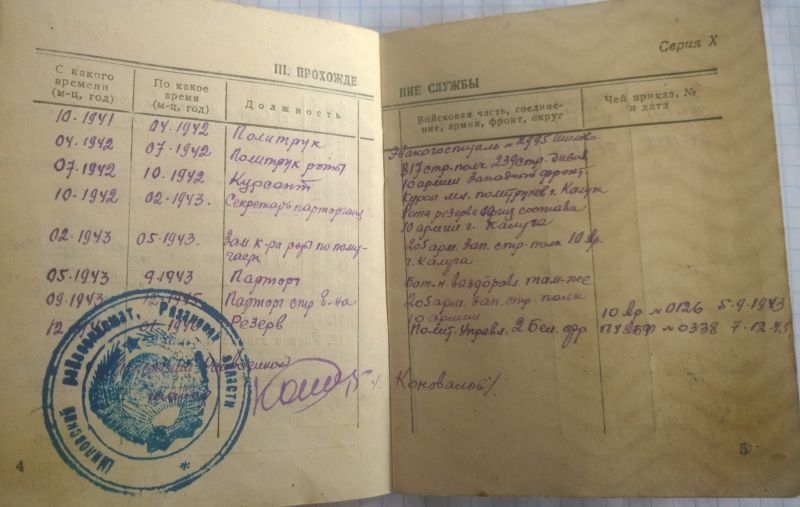 Серия X
III. ПРОХОЖДЕ
НИЕ СЛУЖБЫ
С какого времени (м-ц, год)
По какое время (м-ц, год)
Должность
Войсковая часть, соединение, армия, фронт, округ
Чей приказ, № и дата
10.1941 04.1942 Политрук
Эвакогоспиталь № 2995
04.1942 07.1942 Политрук роты
817 стр. полк 239 стр. дивиз
10 армии Западной фронт
07.1942 10.1942 Курсант
Курсы мл. политруков г. Калуга
10.1942 02.1943. Секретарь парторганиз
Рота резерва состава
10 армии г. Калуга
02.1943 05.1943. Зам. к-ра роты по полит-
части
205 арм. зап. стр. полк 10 Ар.
г. Калуга
05.1943 9.1943 Парторг
Бат-н выздоравл. там-же
09.1943 12.1945 Парторг стр. б-на
205 арм. зап. стр. полк
10 армии
10 Ар №0126 5-9-1943
12. Резерв
Полит. Управл. 2 Бел. фр
№0338 7-12-45
Шиловский райвоенкомат, Рязанской области
Коновалов/
4
5